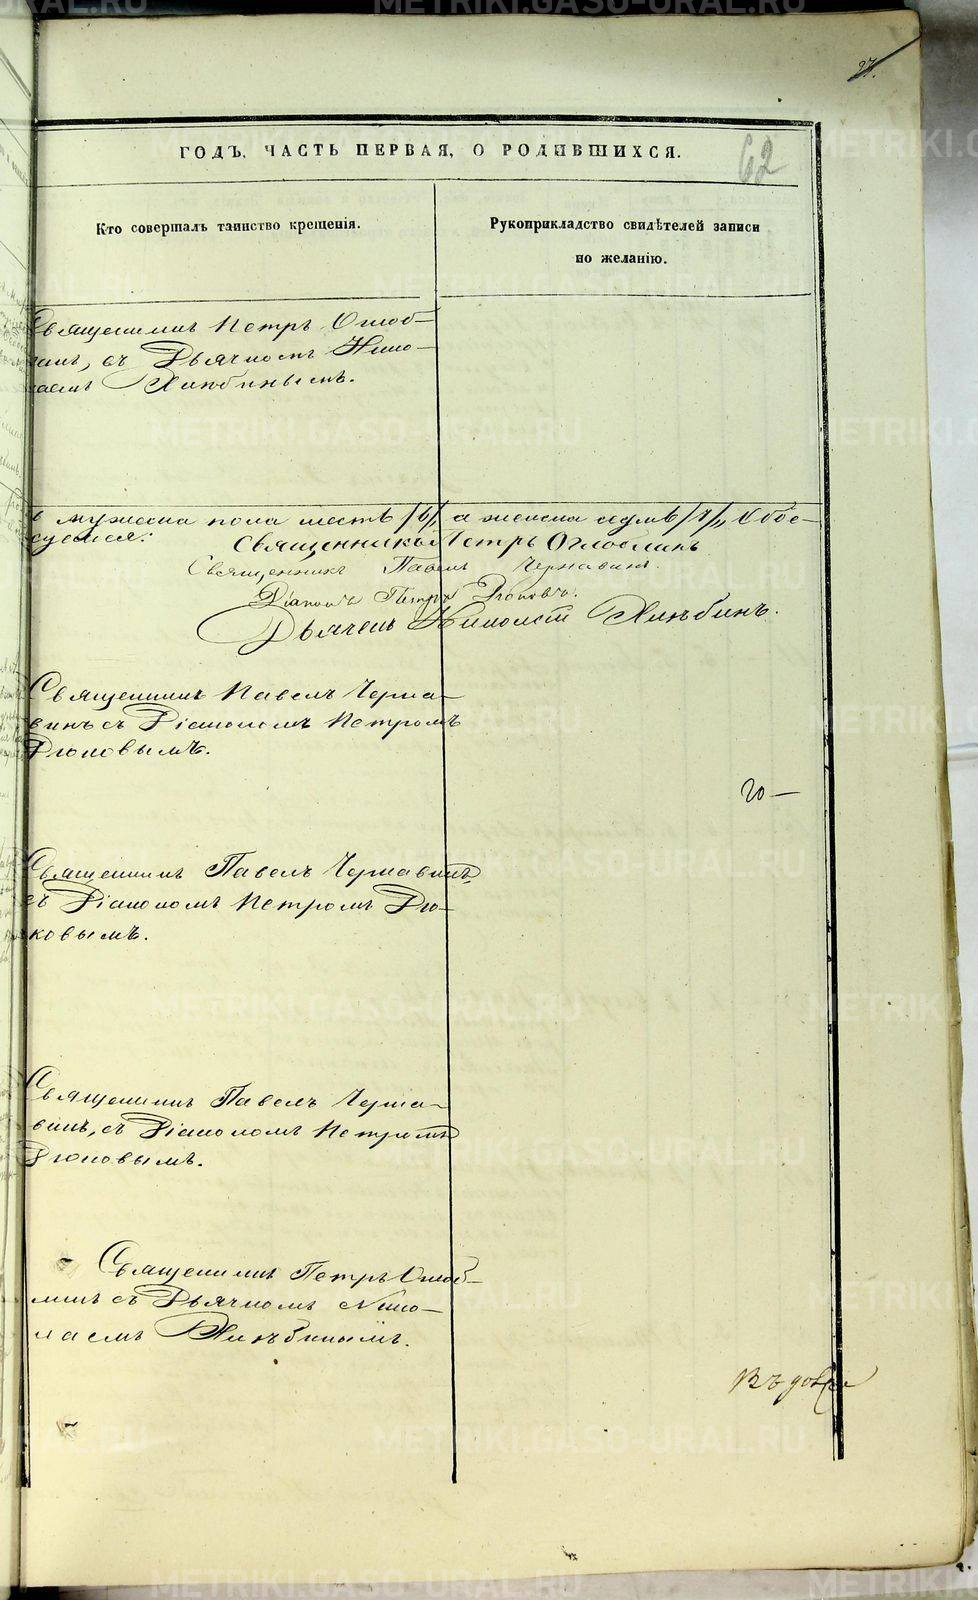 METRIKI.GASO-URAL.RU
27.
62
ГОДЪ, ЧАСТЬ ПЕРВАЯ, О РОДИВШИХСЯ.
Кто совершалъ таинство крещенія.
Рукоприкладство свидѣтелей записи
по желанію.
Священникъ Петръ Оглоб-
линъ, съ Дьячкомъ Нико-
лаемъ Хлѣбинымъ.
мужеска пола шесть /6/, а женска седмь /7/, Обое-
Священникъ Петръ Оглоблинъ
Священникъ Павелъ Чернавинъ.
Діаконъ Петръ Дюковъ.
Дьячекъ Николай Хлѣбинъ.
Священникъ Павелъ Черна-
винъ съ Діакономъ Петромъ
Дюковымъ.
20 —
Священникъ Павелъ Чернавинъ,
съ Діакономъ Петромъ Дю-
ковымъ.
Священникъ Павелъ Черна-
винъ, съ Діакономъ Петромъ
Дюковымъ.
Священникъ Петръ Оглоб-
линъ съ Дьячкомъ Нико-
лаемъ Хлѣбинымъ.